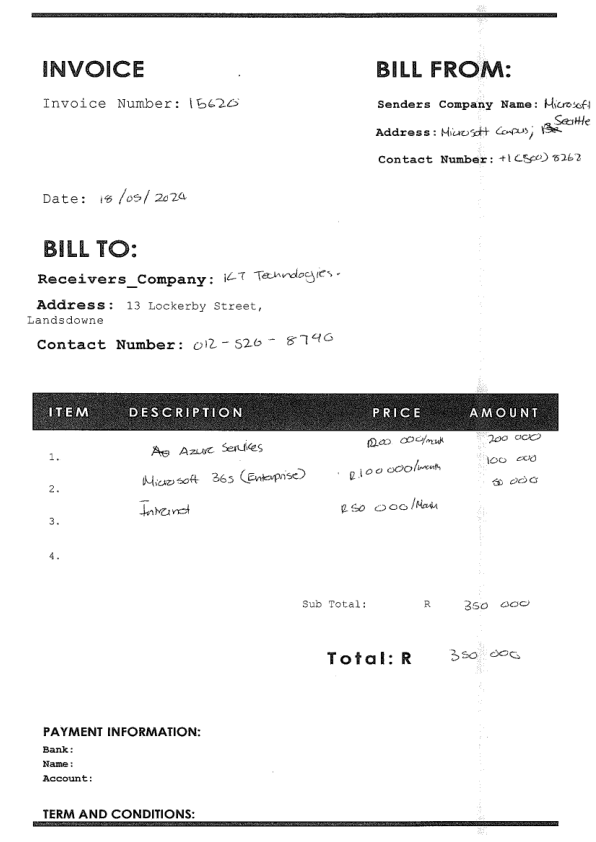 INVOICE
BILL FROM:
Invoice Number: 15620
Senders Company Name: Microsoft
Address: Microsoft Campus, Seattle
Contact Number: +1 (500) 8262
Date: 18/05/2024
BILL TO:
Receivers_Company: Technologies.
Address: 13 Lockerby Street,
Landsdowne
Contact Number: 012-526-8790
ITEM DESCRIPTION PRICE AMOUNT
1. Azure Services R200 000/month 200 000
2. Microsoft 365 (Enterprise) R100 000/month 100 000
3. Internet R50 000/Month 50 000
4.
Sub Total: R 350 000
Total: R 350 000
PAYMENT INFORMATION:
Bank:
Name:
Account:
TERM AND CONDITIONS: